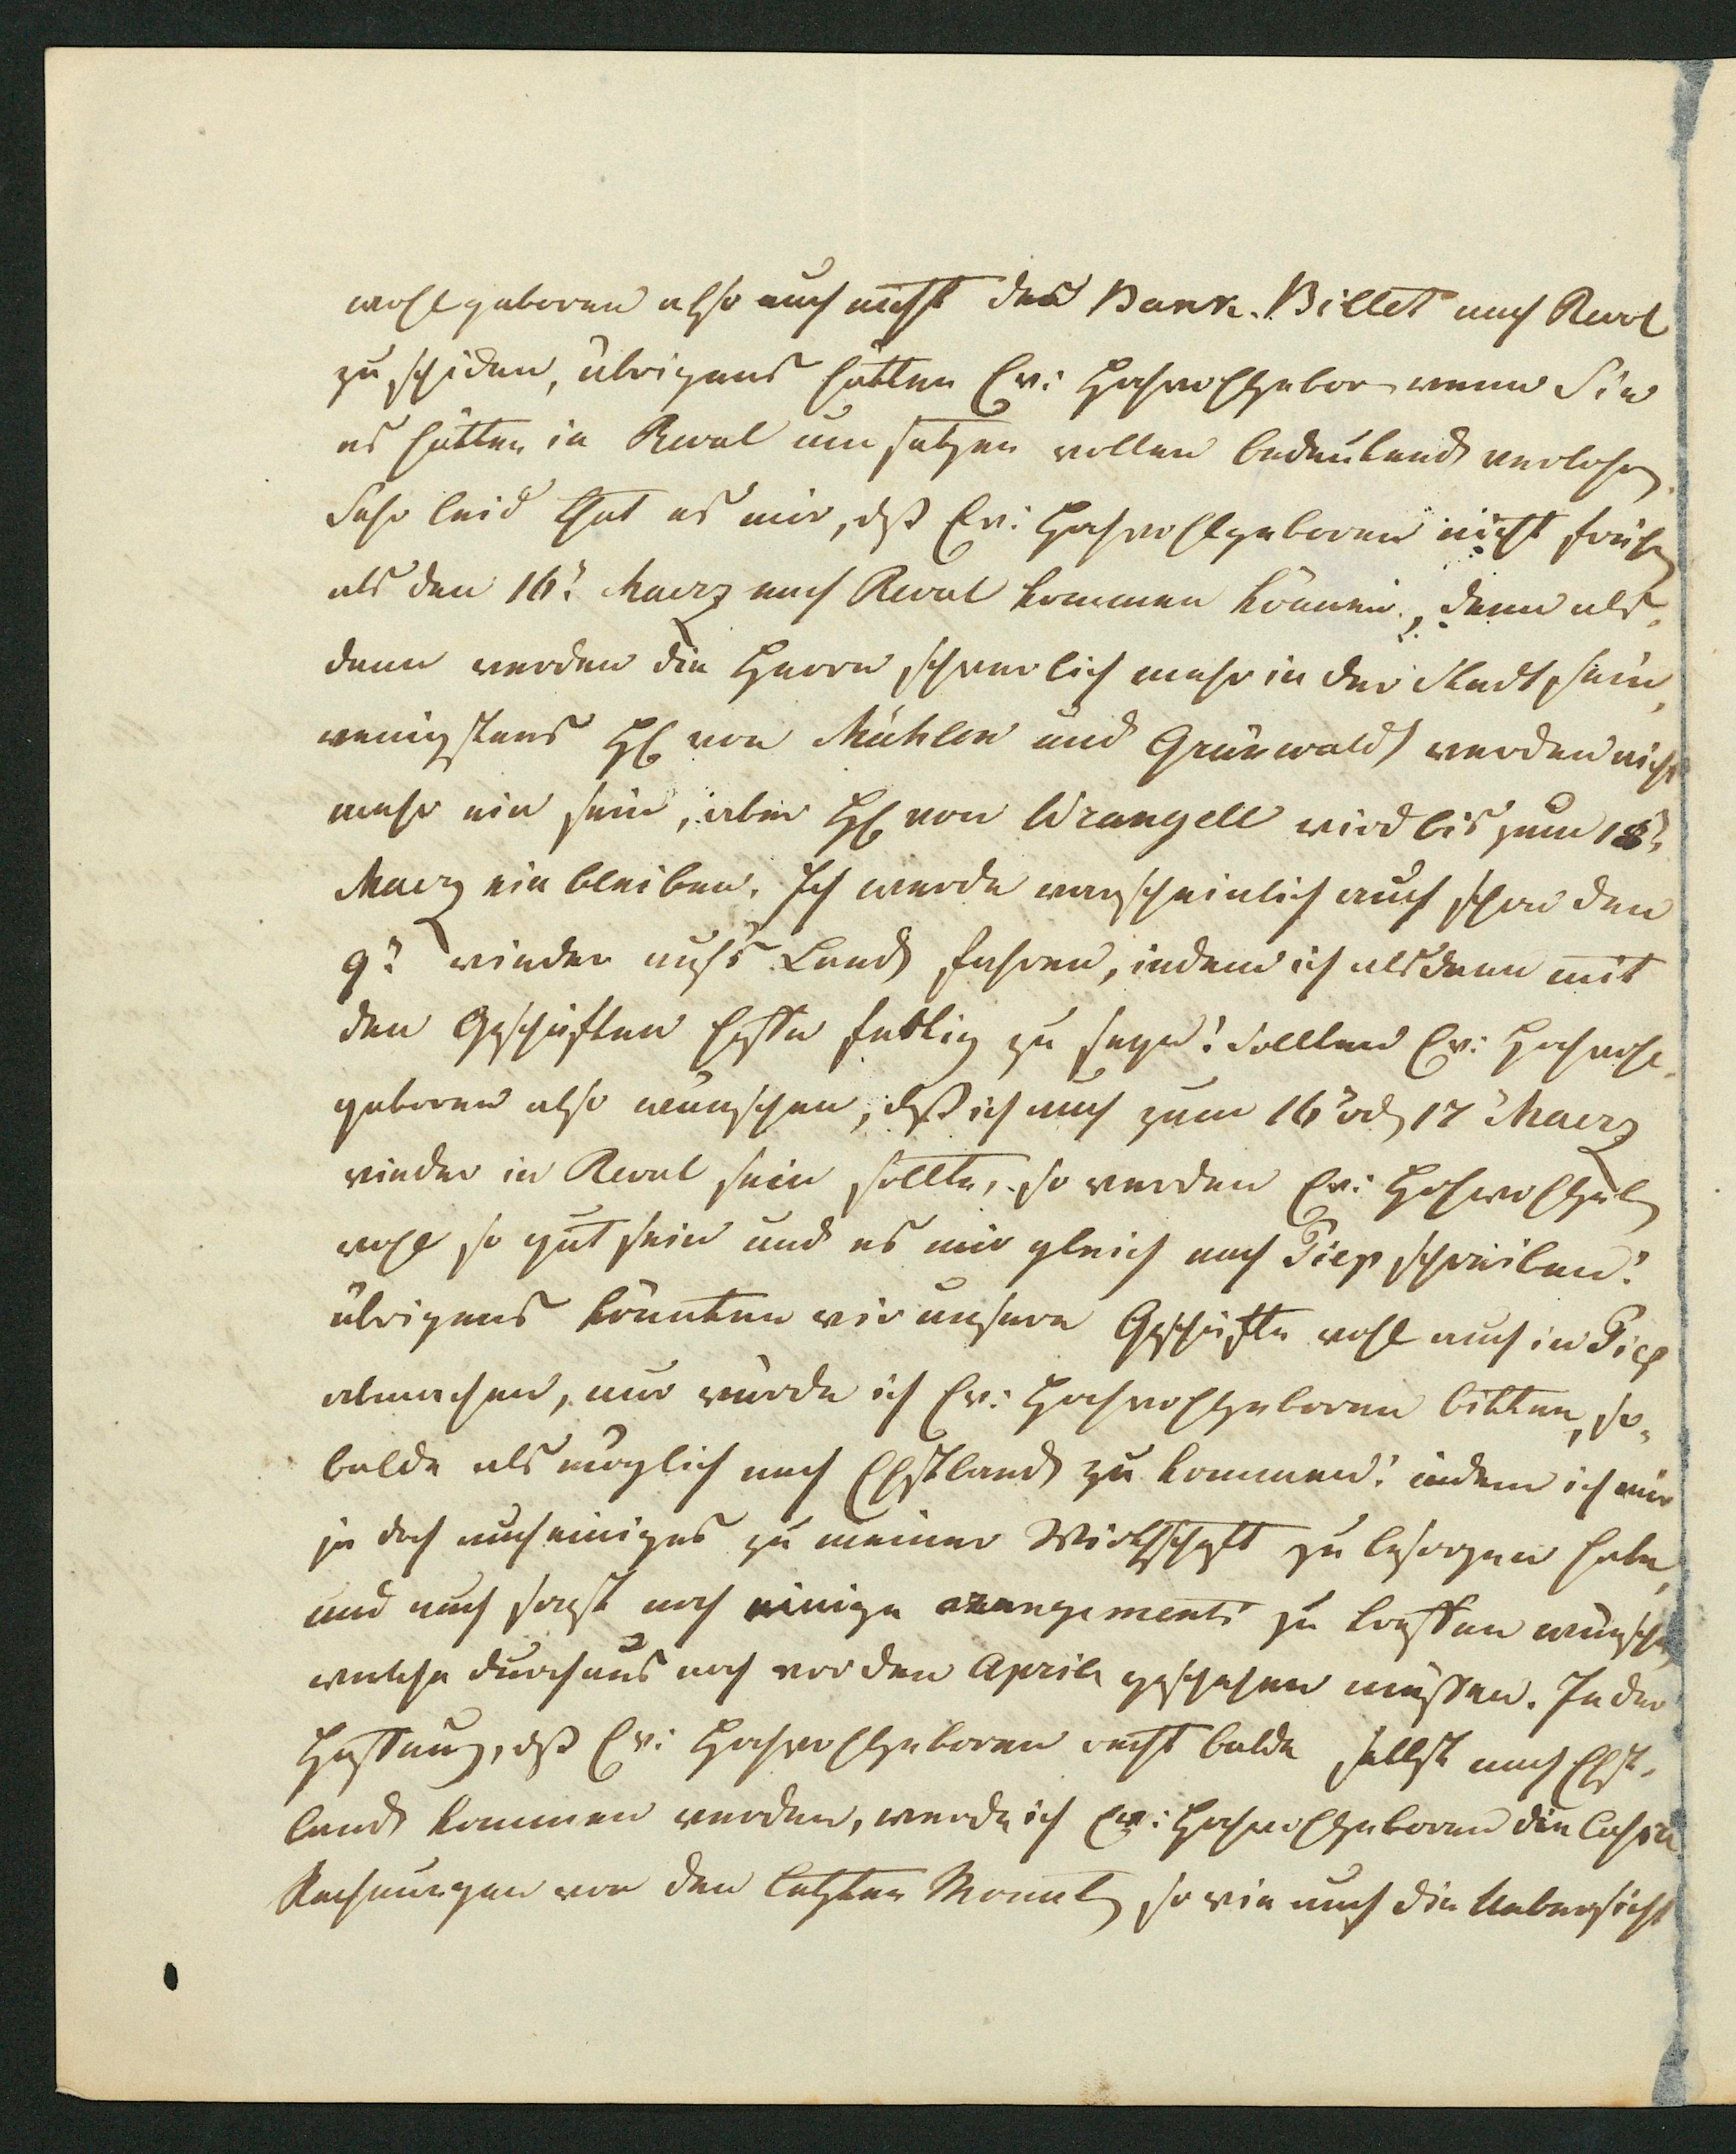 wohlgeboren also auch nicht das Bank-Billet nach Reval
zu schicken, übrigens hätten Ew: Hochwohlgebor. wenn Sie
es hätten in Reval umsetzen wollen bedeutend verlohren.
Sehr leid thut es mir, daß Ew: Hochwohlgeboren nicht früher
als den 16ⁿ Maerz nach Reval kommen können, denn als¬
dann werden die Herrn schwerlich mehr in der Stadt sein,
wenigstens H von Mühlen und Grünwaldt werden nicht
mehr ein sein, aber H von Wrangell wird bis zum 18ⁿ
Maerz ein bleiben. Ich werde warscheinlich auch schon den
9ⁿ wieder aufs Land fahren, indem ich alsdann mit
den Geschäften hoffe fertig zu seyn! Sollten Ew: Hochwohl¬
geboren also wünschen, daß ich auch zum 16ⁿ od 17ⁿ Maerz
wieder in Reval sein sollte, so werden Ew: Hochwohlgeb
wohl so gut sein und es mir gleich nach Piep schreiben!
übrigens könnten wir unsere Geschäfte wohl auch in Piep
abmachen, nur würde ich Ew: Hochwohlgeboren bitten, so¬
balde als möglich nach Ehstland zu kommen! indem ich mir
ja doch auch einiges zu meiner Wirthschaft zu besorgen habe,
und auch sonst noch einige arangements zu treffen wünsche,
welche durchaus noch vor den April geschehen müssen. In der
Hoffnung, daß Ew: Hochwohlgeboren recht balde selbst nach Ehst¬
land kommen werden, werde ich Ew: Hochwohlgeboren die Cassa
Rechnungen von den letzten Monat, so wie auch die Uebersicht